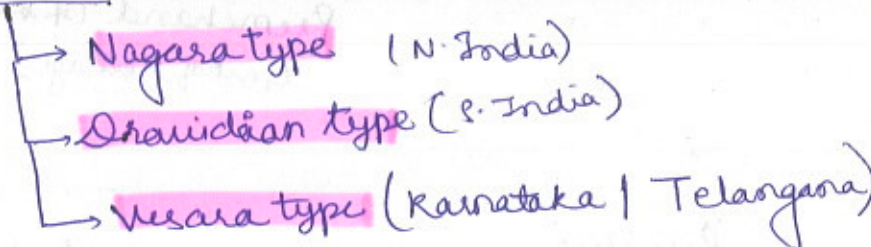 Nagara type (N. India)
Dravidian type (S. India)
Vesara type (Karnataka | Telangana)